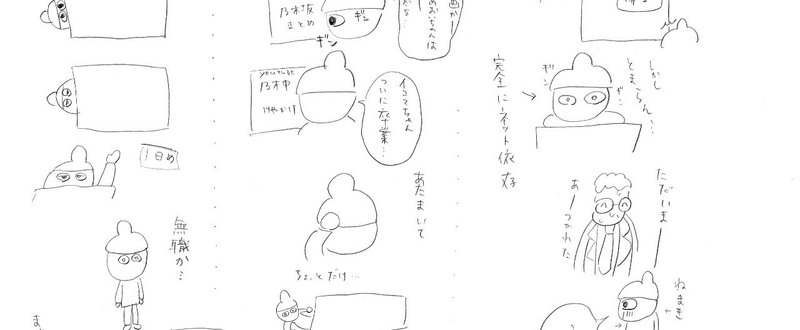 しかし
とまらん…
ギン
ギン
完全にネット依存
ただいまー
あーつかれた
ねまき
乃木坂
まとめ
ギン
ギン
youtube
乃木中
けやかけ
イコマちゃん
ついに卒業…
あたまいて
ちょっとだけ…
1日め
無職か…